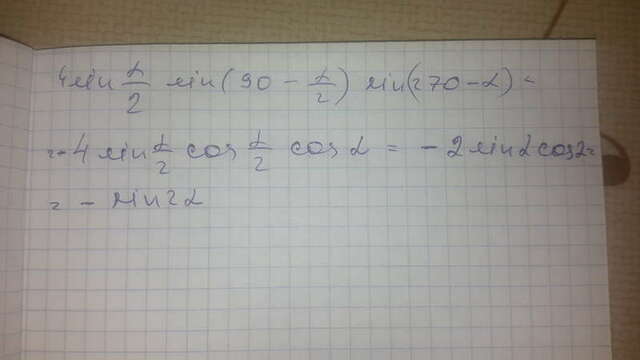 4 sin α/2 sin(90 - α/2) sin(270 - α) =
= -4 sin α/2 cos α/2 cos α = -2 sin α cos α =
= - sin 2α